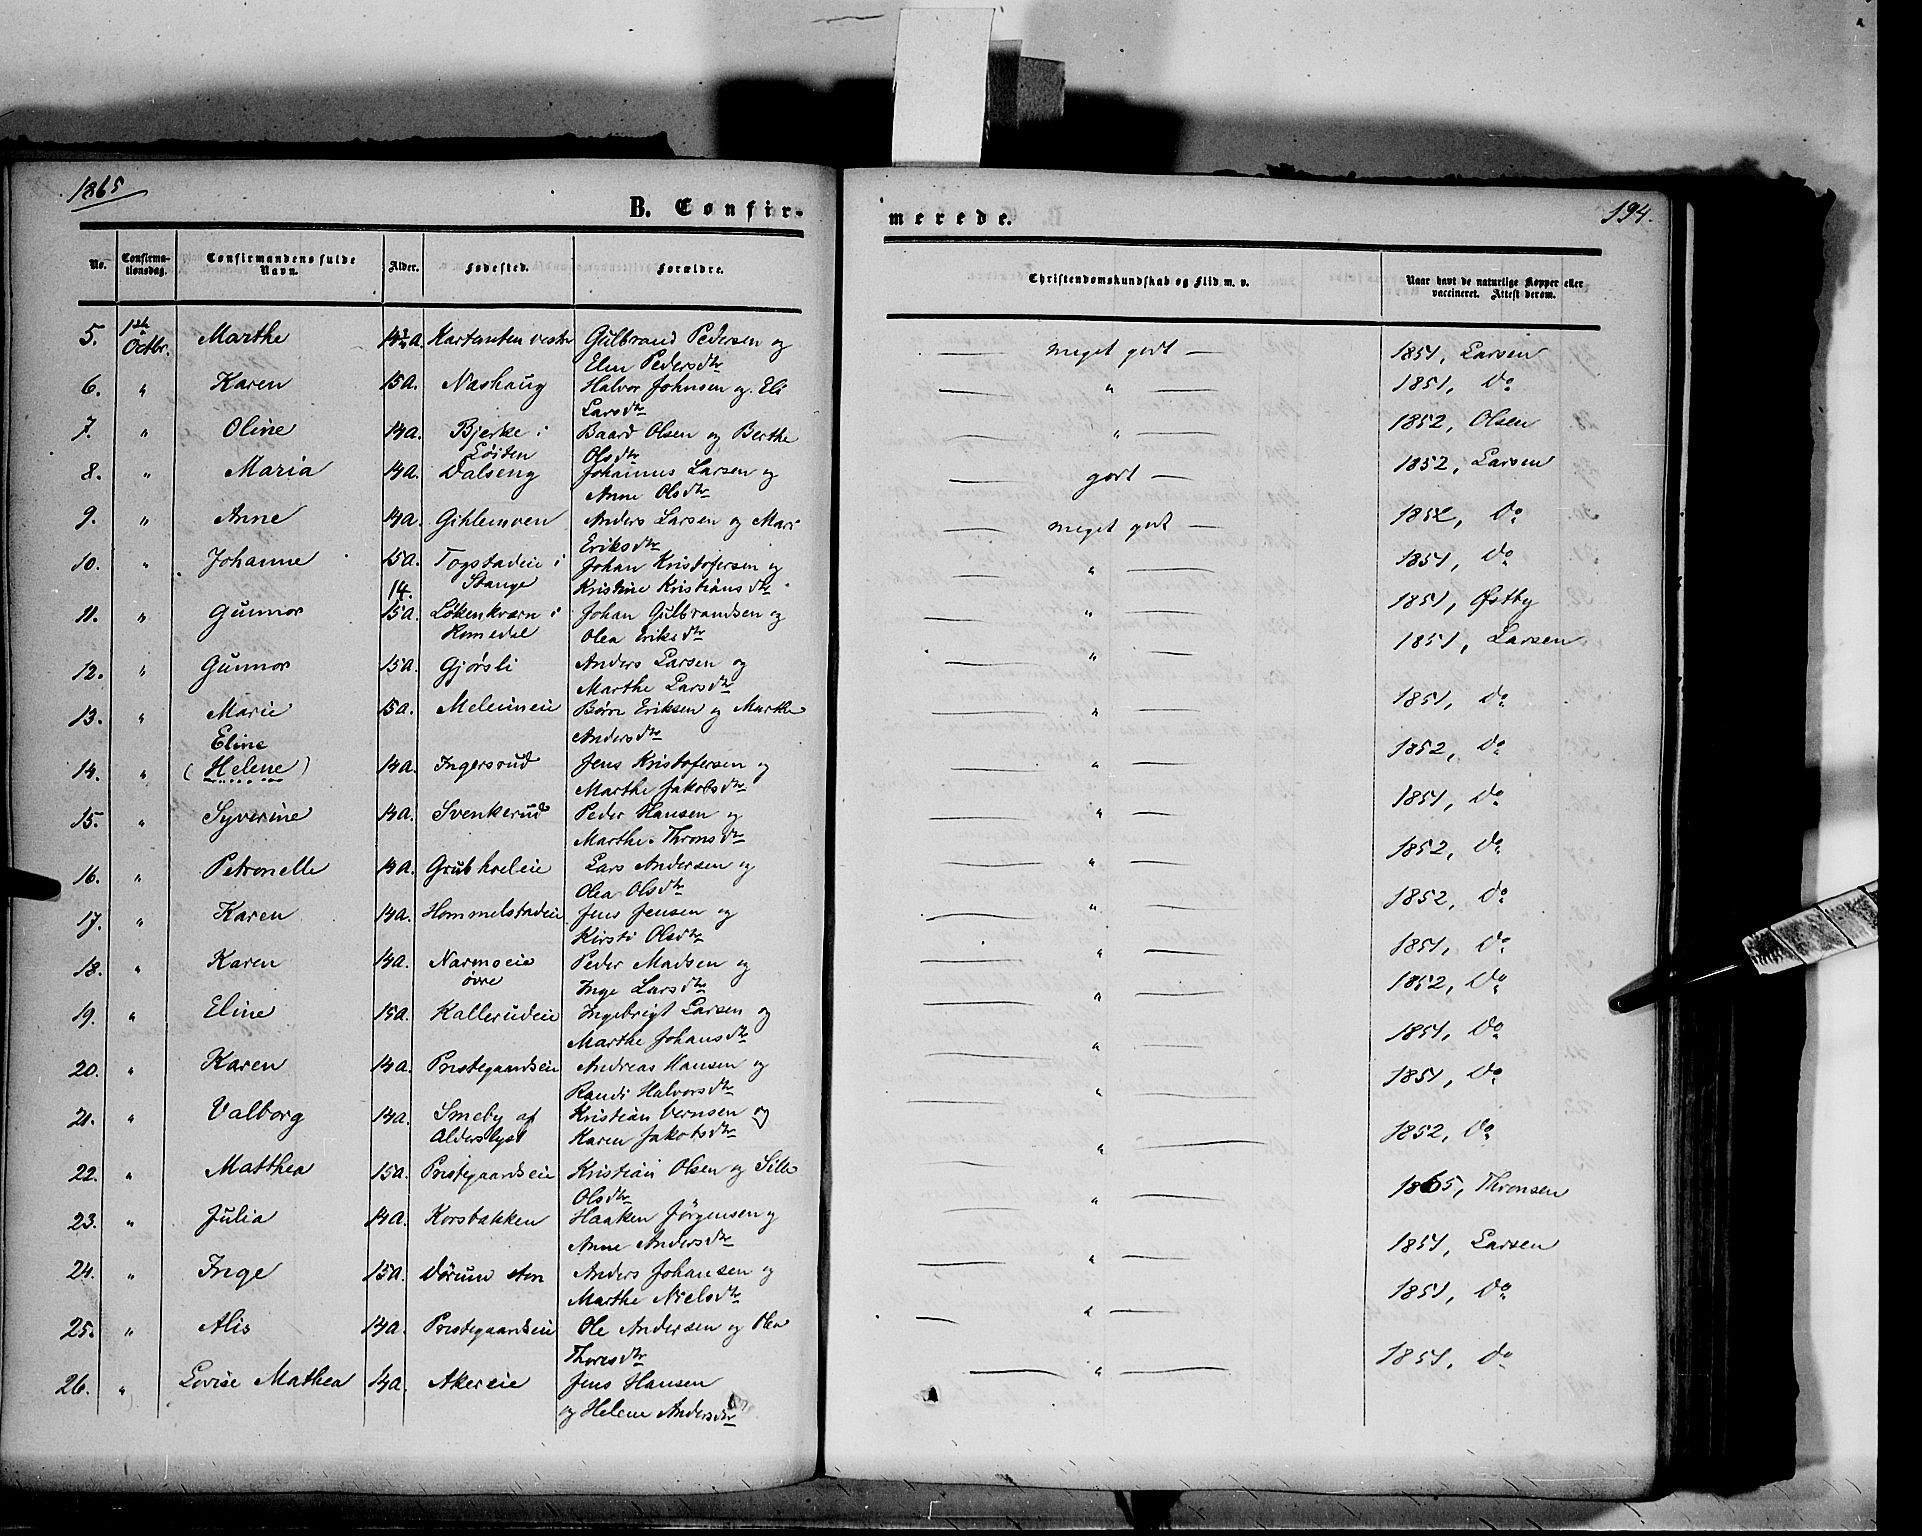 1865
B. Confir-
merede.
194.
No.
Confirma-
tionsdag.
Confirmandens fulde
Navn.
Alder.
Fødested.
Forældre.
Christendomskundskab og Flid m. v.
Naar havt de naturlige Kopper eller
vaccineret. Attest derom.
5. 1ste Octbr. Marthe 14½a. vestre Gulbrand Pedersen og Elen Pedersdtr — meget godt — 1851, Larsen
6. " Karen 15a. Næshaug Halvor Johnsen og Eli Larsdtr — " — 1851, Do
7. " Oline 14a. Bjerke i Löiten Baard Olsen og Berthe Olsdtr — " — 1852, Olsen
8. " Maria 14a. Dalseng Johannes Larsen og Anne Olsdtr — godt — 1852, Larsen
9. " Anne 14a. Gihlemoen Anders Larsen og Mari Eriksdtr — meget godt — 1852, Do
10. " Johanne 15a. Togstadeie i Stange Johan Kristofersen og Kristine Kristiansdtr — " — 1851, Do
11. " Gunnor 14. 15a. Løkenkværn i Romedal Johan Gulbrandsen og Olea Eriksdtr — " — 1851, Østby
12. " Gunnor 15a. Gjørsli Anders Larsen og Marthe Larsdtr — " — 1851, Larsen
13. " Marie 15a. Melumeie Børre Eriksen og Marthe Andersdtr — " — 1851, Do
14. " Eline (Helene) 14a. Ingersrud Jens Kristofersen og Marthe Jakobsdtr — " — 1852, Do
15. " Syverine 14a. Svenkerud Peder Hansen og Marthe Thronsdtr — " — 1851, Do
16. " Petronelle 14a. Grubholeie Lars Andersen og Olea Olsdtr — " — 1852, Do
17. " Karen 14a. Hommelstadeie Jens Jensen og Kirsti Olsdtr — " — 1852, Do
18. " Karen 14a. Narmoeie övre Peder Madsen og Inge Larsdtr — " — 1851, Do
19. " Eline 15a. Kallerudeie Ingebrigt Larsen og Marthe Johansdtr — " — 1852, Do
20. " Karen 14a. Præstegaardseie Andreas Hansen og Randi Halvorsdtr — " — 1851, Do
21. " Valborg 14a. Smeby af Alderslyst Kristian Vernsen og Karen Jakobsdtr — " — 1851, Do
22. " Matthea 15a. Præstegaardseie Kristian Olsen og Olsdtr — " — 1852, Do
23. " Julia 14a. Korsbakken Haaken Jørgensen og Anne Andersdtr — " — 1865, Thronsen
24. " Inge 15a. Dørum Anders Johansen og Marthe Nielsdtr — " — 1851, Larsen
25. " Alis 14a. Præstegaardseie Ole Andersen og Olea Thoresdtr — " — 1851, Do
26. " Lovise Mathea 14a. Akereie Jens Hansen og Helene Andersdtr — " — 1851, Do